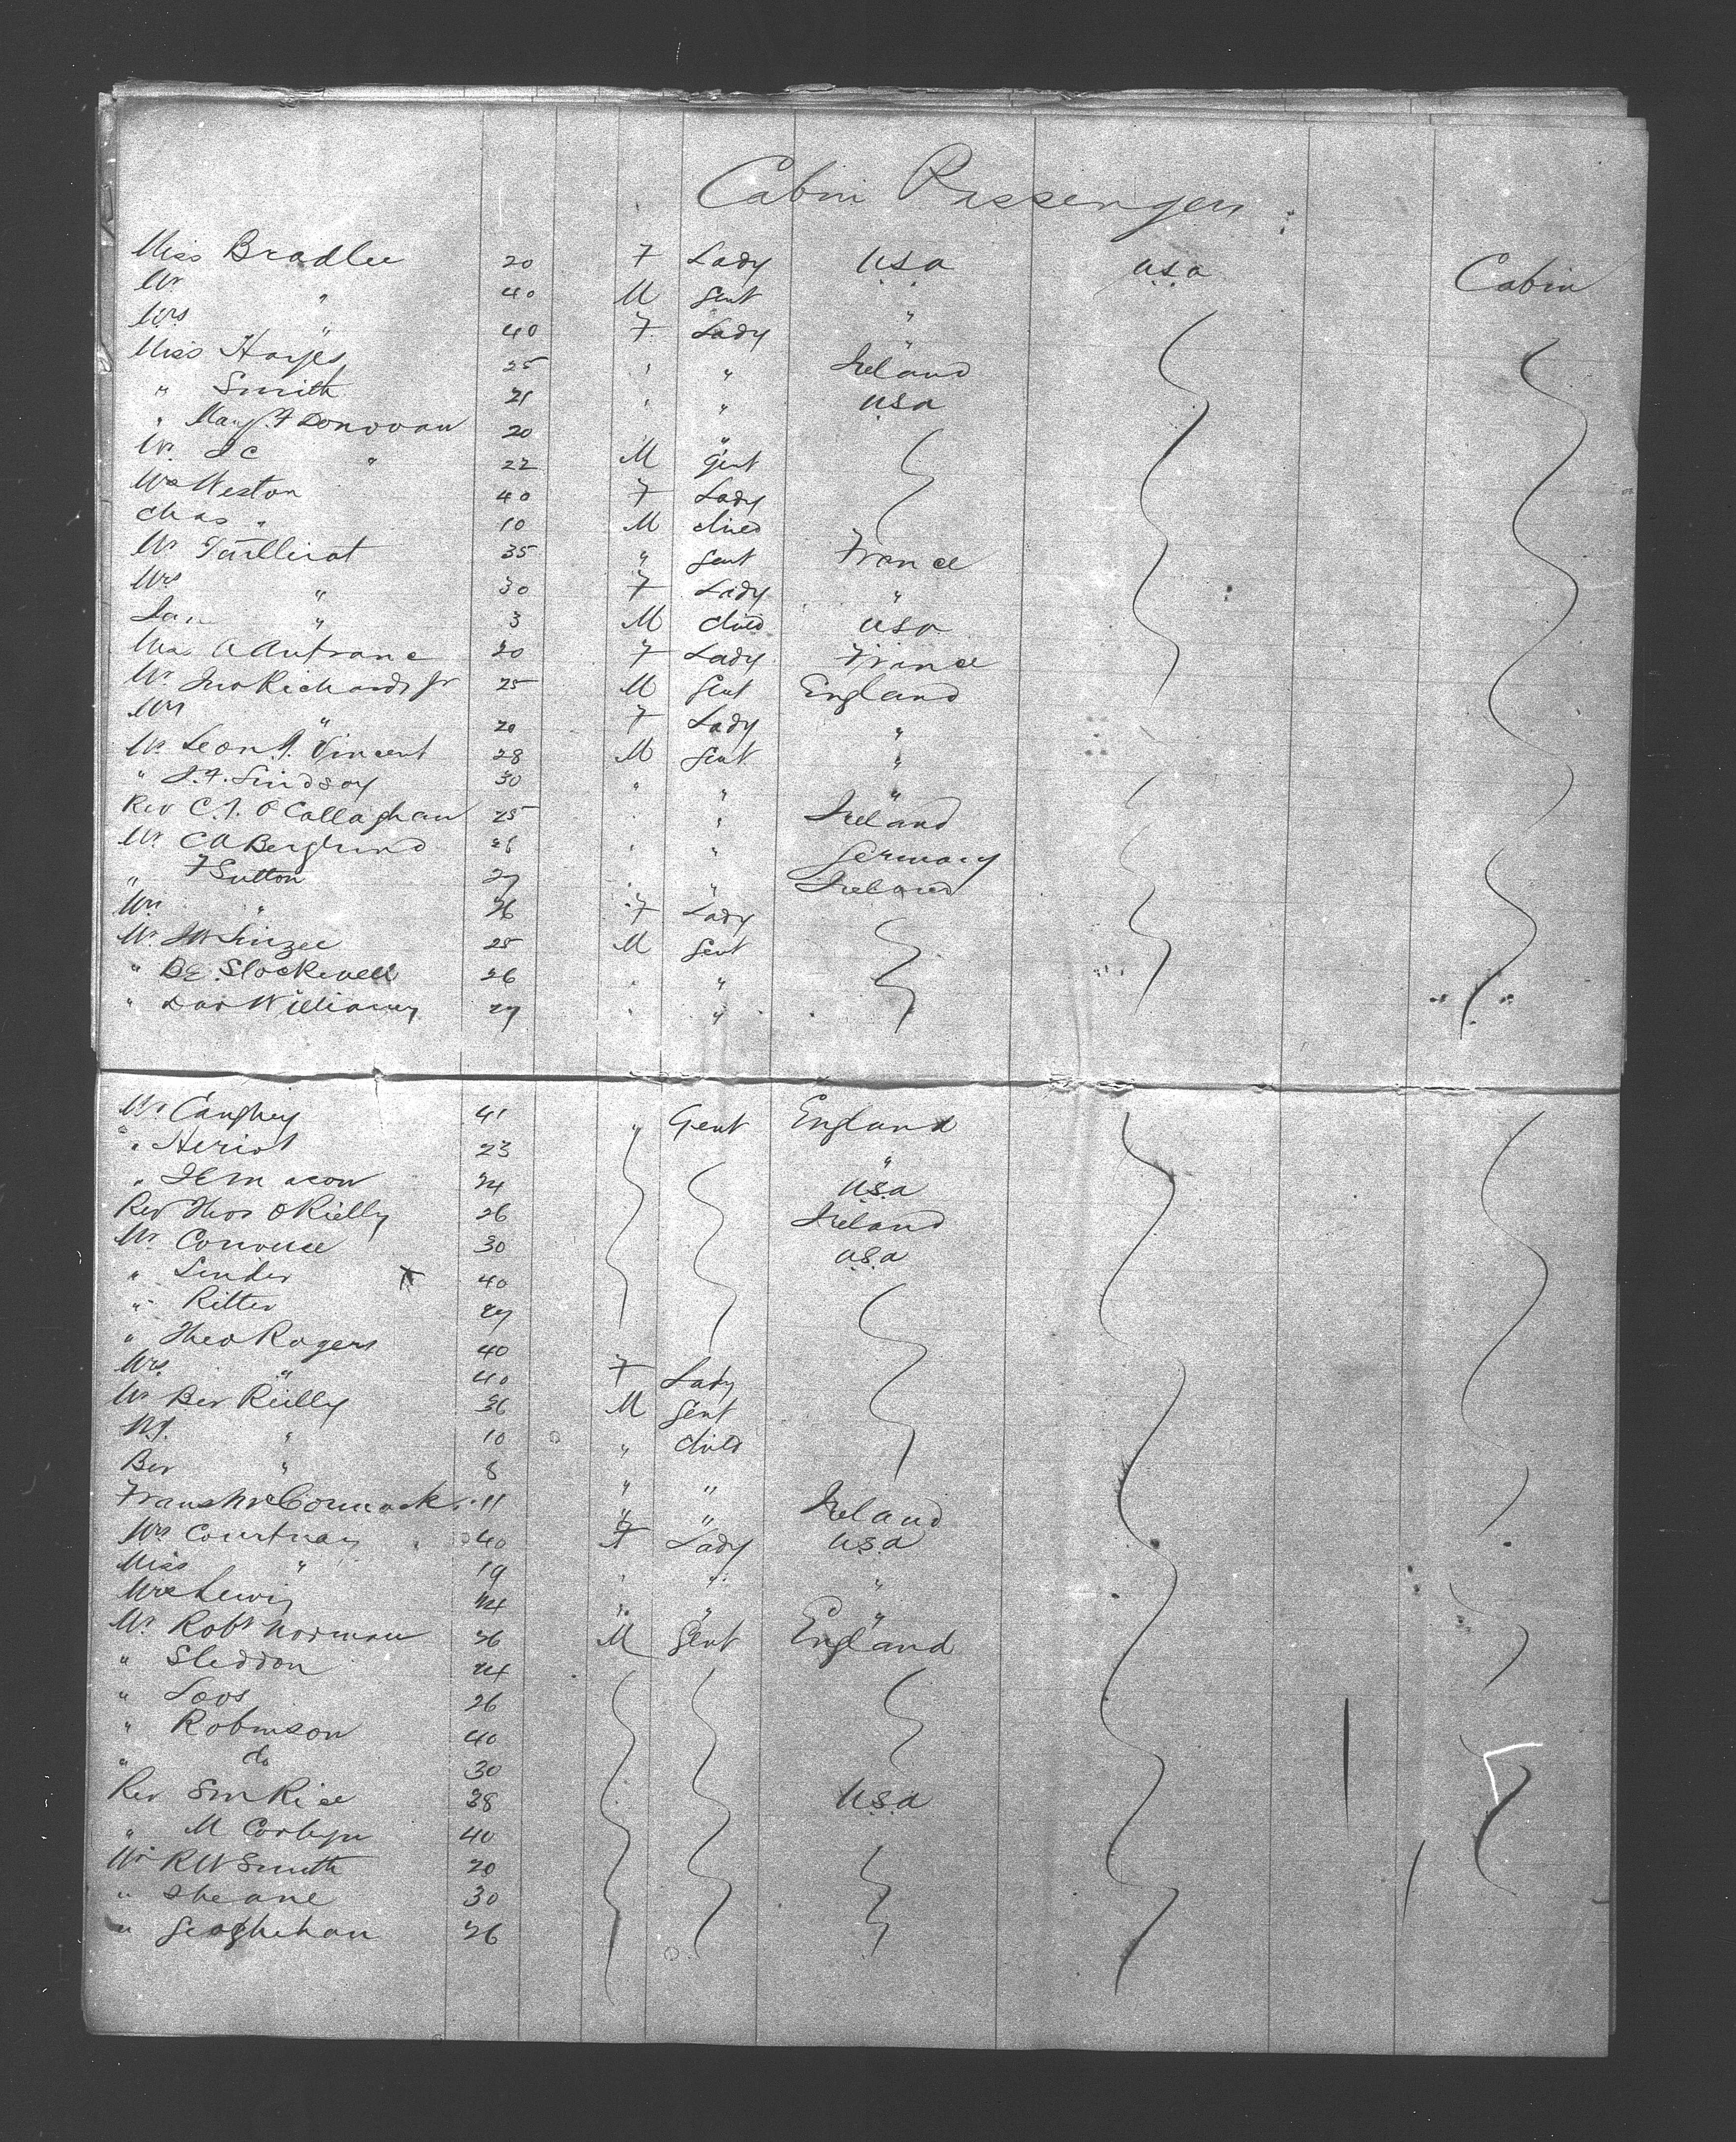 Cabin Passengers:
Miss Bradlee 20 F Lady USA U.S.A Cabin
Mr " 40 M Gent "
Mrs " 40 F Lady "
Miss Hayes 25 " " Ireland
" Smith 21 " " USA
" Mary F Donovan 20 "
Mr. J C " 22 M Gent
Mrs Weston 40 F Lady
Chas " 10 M Child
Mr Taillerat 35 " Gent France
Mrs " 30 F Lady "
" 3 M Child USA
A Autrane 20 F Lady France
Mr Jno Richards Jr 25 M Gent England
Mrs " 20 F Lady "
Mr Leon J. Vincent 28 M Gent "
" J. F. Lindsay 30 " " "
Rev C. J. O'Callaghan 25 " " Ireland
Mr C A Berglund 26 " " Germany
" F Sutton 27 " " Ireland
Mrs " 26 F Lady
Mr. J W Linzee 25 M Gent
" B E. Stockwell 26 " "
" Dav Williams 27 " "
Mr. Caughey 41 " Gent England
" Heriot 23 "
" 24 U.S.A
Rev Thos O Rielly 26 Ireland
Mr Converse 30 U.S.A
" Linder 40
" Ritter 27
" Theo Rogers 40
Mrs. " 40 F Lady
Mr Ber Reilly 36 M Gent
" 10 " Child
Ber " 8 " "
Frans McCormack 11 " " Ireland
Mrs Courtnay 40 F Lady U.S.A
Miss " 19 " " "
Mrs Lewis 24 " " "
Mr. Robt Norman 36 M Gent England
" Sleddon 24
" Loos 26
" Robinson 40
" do 30
Rev S M Rice 38 U.S.A
" M Corbyn 40
Mr R W Smith 20
" Sheane 30
" Geoghehan 26